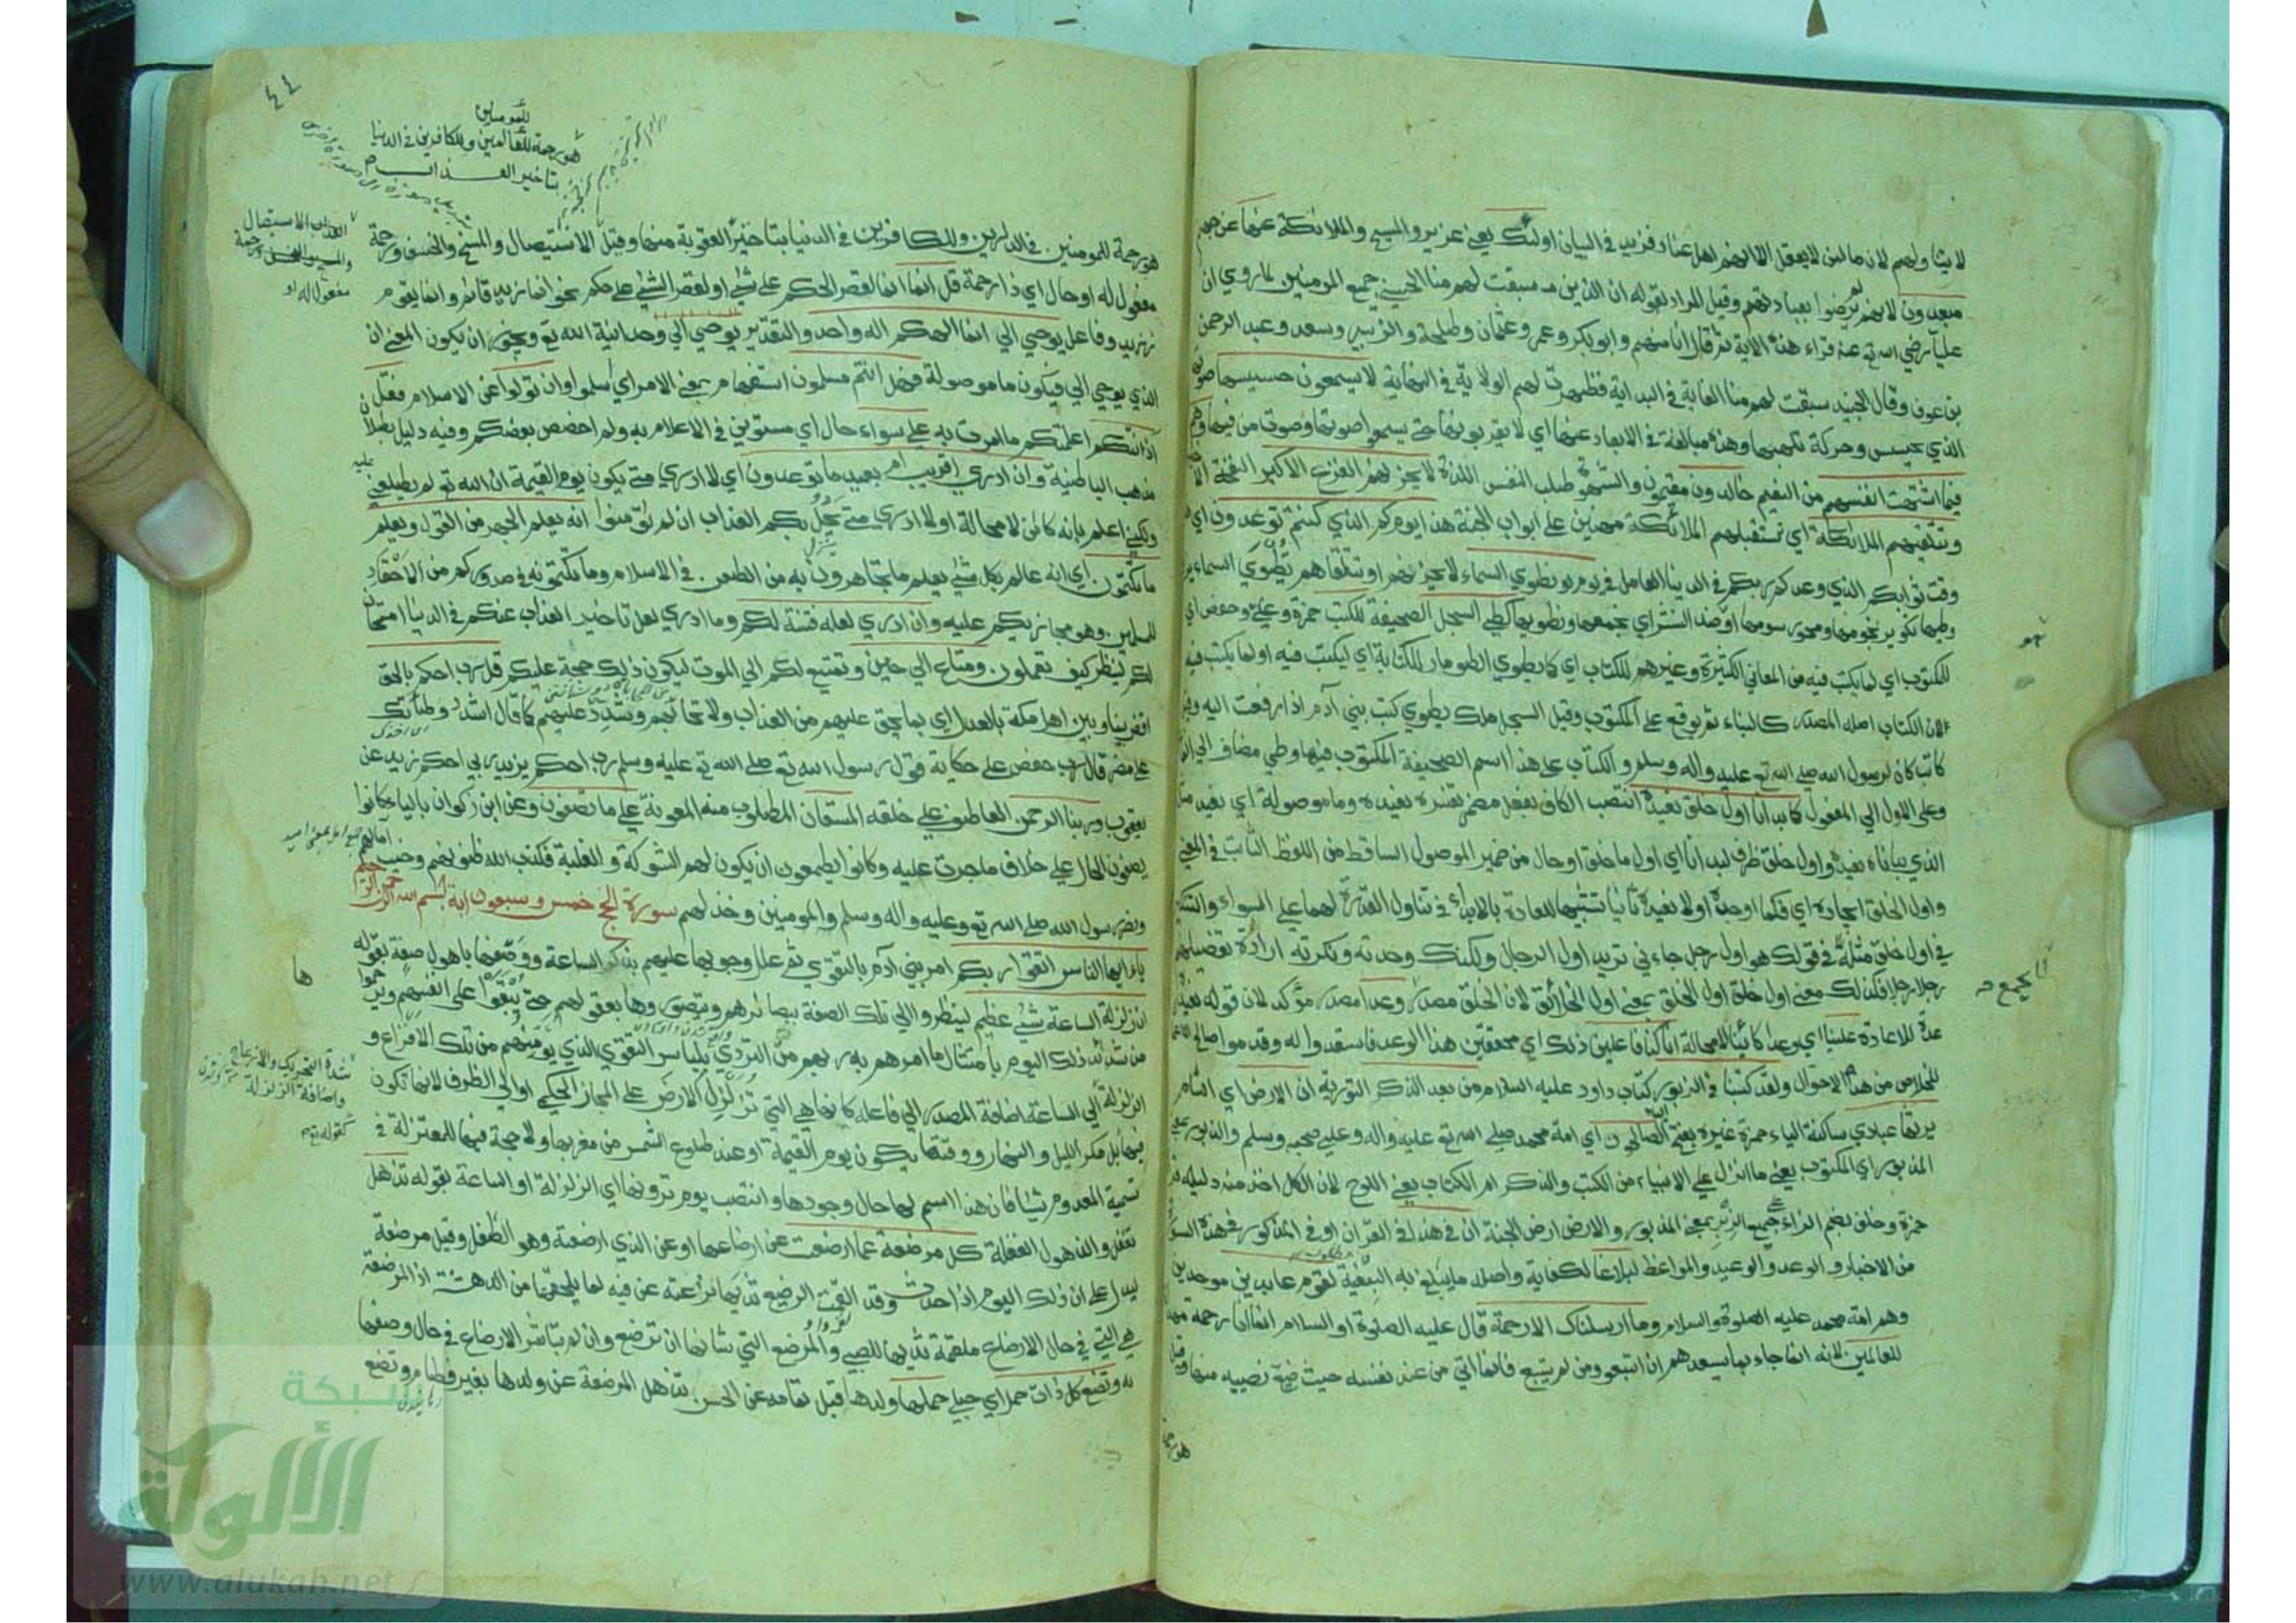 لا يتناولهم لان ما لمن لا يعقل الا انهم اهل عناد فزيد في البيان اولئك يعني عزير والمسيح والملائكة عنها عن جهنم
مبعدون لانهم لم يرضوا بعبادتهم وقيل المراد بقوله ان الذين سبقت لهم منا الحسنى جميع المومنين لما روي ان
عليا رضي الله تع عنه قراء هذه الاية ثم قال انا منهم وابو بكر وعمر وعثمان وطلحة والزبير وسعد وعبد الرحمن
بن عوف وقال الجنيد سبقت لهم منا العناية في البداية فظهرت لهم الولاية في النهاية لا يسمعون حسيسها صوتها
الذي يحس وحركة تلهبها وهذه مبالغة في الابعاد عنها اي لا يقربونها حتى يسمعوا صوتها وصوت من فيها وهم
فيما اشتهت انفسهم من النعيم خالدون مقيمون والشهوة طلب النفس اللذة لا يحزنهم الفزع الاكبر النفخة
وتتلقيهم الملائكة اي تستقبلهم الملائكة مهنين على ابواب الجنة هذا يومكم الذي كنتم توعدون اي
وقت ثوابكم الذي وعدكم ربكم في الدنيا العامل في يوم يوم نطوي السماء لا يحزنهم او تتلقاهم تطوي السماء
وطيها تكوير نجومها ومحو رسومها او ضد النشر اي نجمعها ونطويها كطي السجل الصحيفة للكتب حمزة وعلي وحفص اي
للمكتوب اي لما يكتب فيه من المعاني الكثيرة وغيرهم للكتاب اي كما يطوي الطومار للكتابة اي ليكتب فيه او لما يكتب فيه
لان الكتاب اصله المصدر كالبناء ثم يوقع على المكتوب وقيل السجل ملك يطوي كتب بني آدم اذا رفعت اليه وقيل
كاتب كان لرسول الله صلى الله تع عليه واله وسلم والكتاب على هذا اسم الصحيفة المكتوب فيها وطي مضاف الى الفا
وعلى الاول الى المفعول كما بدانا اول خلق نعيده انتصب الكاف بفعل مضمر تفسره نعيده وما موصولة اي نعيد مثل
الذي بداناه نعيده واول خلق ظرف لبدانا اي اول ما خلق او حال من ضمير الموصول الساقط من اللفظ الثابت في المعنى
واول الخلق ايجاده اي فكما اوجده اولا نعيده ثانيا تشبيها للاعادة بالابداء في تناول القدرة لهما على السواء والتنكير
في اول خلق مثله في قولك هو اول رجل جاءني تريد اول الرجال ولكنك وحدته ونكرته ارادة تفصيلهم
رجلا رجلا فكذلك معنى اول خلق اول الخلق بمعنى اول الخلائق لان الخلق مصدر وعدا مصدر مؤكد لان قوله نعيده
عدة للاعادة علينا اي وعدا كائنا لا محالة انا كنا فاعلين ذلك اي محققين هذا الوعد فاستعدوا له وقدموا صالح الاعمال
للخلاص من هذه الاحوال ولقد كتبنا في الزبور كتاب داود عليه السلام من بعد الذكر التورية ان الارض اي الشام
يرثها عبادي ساكنة الياء حمزة غيره بفتح الصالحون اي امة محمد صلى الله تع عليه واله وعلى صحبه وسلم والزبور بمعنى
المزبور اي المكتوب يعني ما انزل على الانبياء من الكتب والذكر ام الكتاب يعني اللوح لان الكل اخذ منه دليله
حمزة وخلف بضم الزاء على جميع الزبر بمعنى المزبور والارض ارض الجنة ان في هذا في القران او في المذكور في هذه السورة
من الاخبار والوعد والوعيد والمواعظ لبلاغا لكفاية واصله ما يبلغ به البغية لقوم عابدين موحدين
وهم امة محمد عليه الصلوة والسلام وما ارسلناك الا رحمة قال عليه الصلوة والسلام انما انا رحمة مهداة
للعالمين لانه انما جاء بما يسعدهم ان اتبعوه ومن لم يتبع فانما اتي من عند نفسه حيث ضيع نصيبه منها وقيل
يجمع
٤٤
للمومنين
هو رحمة للعالمين وللكافرين في الدنيا
بتاخير العذاب
هو رحمة للمومنين في الدارين وللكافرين في الدنيا بتاخير العقوبة منها وقيل الاستيصال والمسخ والخسف ورحمة
مفعول له او حال اي ذا رحمة قل انما انما لقصر الحكم على شيء او لقصر الشيء على حكم نحو انما زيد قائم وانما يقوم
زيد وفاعل يوحي الي انما الهكم اله واحد والتقدير يوحي الي وحدانية الله تع ويجوز ان يكون المعنى ان
الذي يوحي الي فيكون ما موصولة فهل انتم مسلمون استفهام بمعنى الامر اي اسلموا وان تولوا عن الاسلام فقل
آذنتكم اعلمتكم ما امرت به على سواء حال اي مستوين في الاعلام به ولم اخصص بعضكم وفيه دليل بطلان
مذهب الباطنية وان ادري اقريب ام بعيد ما توعدون اي لا ادري متى يكون يوم القيمة لان الله تع لم يطلعني
ولكني اعلم بانه كائن لا محالة او لا ادري متى يحل بكم العذاب ان لم تؤمنوا انه يعلم الجهر من القول ويعلم
ما تكتمون اي انه عالم بكل شيء يعلم ما تجاهرون به من الطعن في الاسلام وما تكتمونه في صدوركم من الاحقاد
للمسلمين وهو مجازيكم عليه وان ادري لعله فتنة لكم وما ادري لعل تاخير العذاب عنكم في الدنيا امتحان
لكم لينظر كيف تعملون ومتاع الى حين وتمتيع لكم الى الموت ليكون ذلك حجة عليكم قل رب احكم بالحق
اقض بيننا وبين اهل مكة بالعدل اي بما يحق عليهم من العذاب ولا تحابهم وشدد عليهم كما قال اشدد وطأتك
على مضر قال رب حفص على حكاية قول رسول الله تع صلى الله تع عليه وسلم رب احكم يزيد ربي احكم زيد عن
يعقوب وربنا الرحمن العاطف على خلقه المستعان المطلوب منه المعونة على ما تصفون وعن ابن ذكوان بالياء كانوا
يصفون الحال على خلاف ما جرت عليه وكانوا يطمعون ان يكون لهم الشوكة والغلبة فكذب الله ظنونهم وخيب
ونصر رسول الله صلى الله تع وعليه واله وسلم والمومنين وخذلهم سورة الحج خمس وسبعون اية بسم الله الرحمن الرحيم
يا ايها الناس اتقوا ربكم امر بني آدم بالتقوى ثم علل وجوبها عليهم بذكر الساعة ووصفها باهول صفة بقوله
ان زلزلة الساعة شيء عظيم لينظروا الى تلك الصفة ببصائرهم ويتصوروها بعقولهم حتى يبقوا على انفسهم ويرحموا
من شدائد ذلك اليوم بامتثال ما امرهم به ربهم من التردي بلباس التقوى الذي يؤمنهم من تلك الافزاع و
الزلزلة الى الساعة اضافة المصدر الى فاعله كانها هي التي تزلزل الارض على المجاز الحكمي او الى الظرف لانها تكون
فيها بل مكر الليل والنهار ووقتها يكون يوم القيمة او عند طلوع الشمس من مغربها ولا حجة فيها للمعتزلة في
تسمية المعدوم شيئا فان هذا اسم لها حال وجودها وانتصب يوم ترونها اي الزلزلة او الساعة بقوله تذهل
تغفل والذهول الغفلة كل مرضعة عما ارضعت عن ارضاعها او عن الذي ارضعته وهو الطفل وقيل مرضعة
ليدل على ان ذلك اليوم اذا حدث وقد القمت الرضيع ثديها نزعته عن فيه لما يلحقها من الدهشة اذ المرضعة
هي التي في حال الارضاع ملقمة ثديها للصبي والمرضع التي شانها ان ترضع وان لم تباشر الارضاع في حال وصفها
به وتضع كل ذات حمل اي حبلى حملها ولدها قبل تمامه عن الحسن تذهل المرضعة عن ولدها بغير فطام وتضع
العذاب الاستيصال
مفعول له او
آمالهم
ها
شدة التحريك والازعاج
واضافة الزلزلة
كقوله تع
شبكة
الألوكة
www.alukah.net